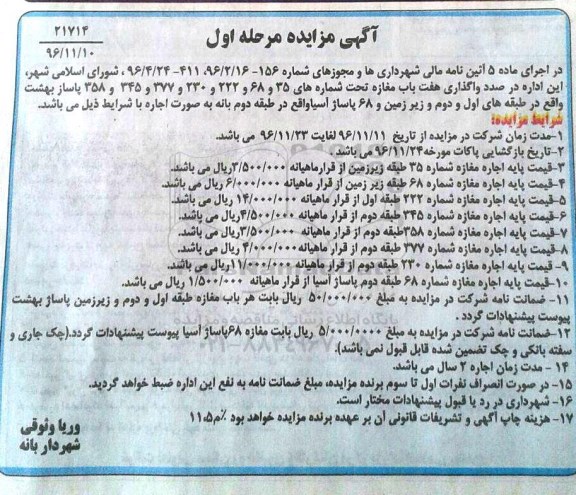 آگهی مزایده مرحله اول
۲۱۷۱۴
۹۶/۱۱/۱۰
در اجرای ماده ۵ آئین نامه مالی شهرداری ها و مجوزهای شماره ۱۵۶- ۹۶/۲/۱۶، ۴۱۱- ۹۶/۴/۲۴ ، شورای اسلامی شهر،
این اداره در صدد واگذاری هفت باب مغازه تحت شماره های ۳۵ و ۶۸ و ۲۲۲ و ۲۳۰ و ۳۷۷ و ۳۴۵ و ۳۵۸ پاساژ بهشت
واقع در طبقه های اول و دوم و زیر زمین و ۶۸ پاساژ آسیاواقع در طبقه دوم بانه به صورت اجاره با شرایط ذیل می باشد.
شرایط مزایده:
۱-مدت زمان شرکت در مزایده از تاریخ ۹۶/۱۱/۱۱ لغایت ۹۶/۱۱/۲۳ می باشد.
۲-تاریخ بازگشایی پاکات مورخه۹۶/۱۱/۲۴می باشد.
۳-قیمت پایه اجاره مغازه شماره ۳۵ طبقه زیرزمین از قرارماهیانه ۳/۵۰۰/۰۰۰ریال می باشد.
۴-قیمت پایه اجاره مغازه شماره ۶۸ طبقه زیر زمین از قرار ماهیانه ۶/۰۰۰/۰۰۰ ریال می باشد.
۵-قیمت پایه اجاره مغازه شماره ۲۲۲ طبقه اول از قرار ماهیانه ۱۴/۰۰۰/۰۰۰ ریال می باشد.
۶-قیمت پایه اجاره مغازه شماره ۳۴۵ طبقه دوم از قرار ماهیانه ۴/۵۰۰/۰۰۰ریال می باشد.
۷-قیمت پایه اجاره مغازه شماره ۳۵۸طبقه دوم از قرار ماهیانه ۳/۵۰۰/۰۰۰ریال می باشد.
۸-قیمت پایه اجاره مغازه شماره ۳۷۷ طبقه دوم از قرار ماهیانه ۴/۰۰۰/۰۰۰ ریال می باشد.
۹- قیمت پایه اجاره مغازه شماره ۲۳۰ طبقه دوم از قرار ماهیانه ۱۱/۰۰۰/۰۰۰ ریال می باشد.
۱۰-قیمت پایه اجاره مغازه شماره ۶۸ طبقه دوم پاساژ آسیا از قرار ماهیانه ۱/۵۰۰/۰۰۰ ریال می باشد.
۱۱- ضمانت نامه شرکت در مزایده به مبلغ ۵۰/۰۰۰/۰۰۰ ریال بابت هر باب مغازه طبقه اول و دوم و زیرزمین پاساژ بهشت
پیوست پیشنهادات گردد .
۱۲-ضمانت نامه شرکت در مزایده به مبلغ ۵/۰۰۰/۰۰۰۰ ریال بابت مغازه ۶۸پاساژ آسیا پیوست پیشنهادات گردد.(چک جاری و
سفته بانکی و چک تضمین شده قابل قبول نمی باشد).
۱۴ - مدت زمان اجاره ۲ سال می باشد.
۱۵- در صورت انصراف نفرات اول تا سوم برنده مزایده، مبلغ ضمانت نامه به نفع این اداره ضبط خواهد گردید.
۱۶- شهرداری در رد یا قبول پیشنهادات مختار است.
۱۷- هزینه چاپ آگهی و تشریفات قانونی آن بر عهده برنده مزایده خواهد بود
وریا وثوقی
شهردار بانه